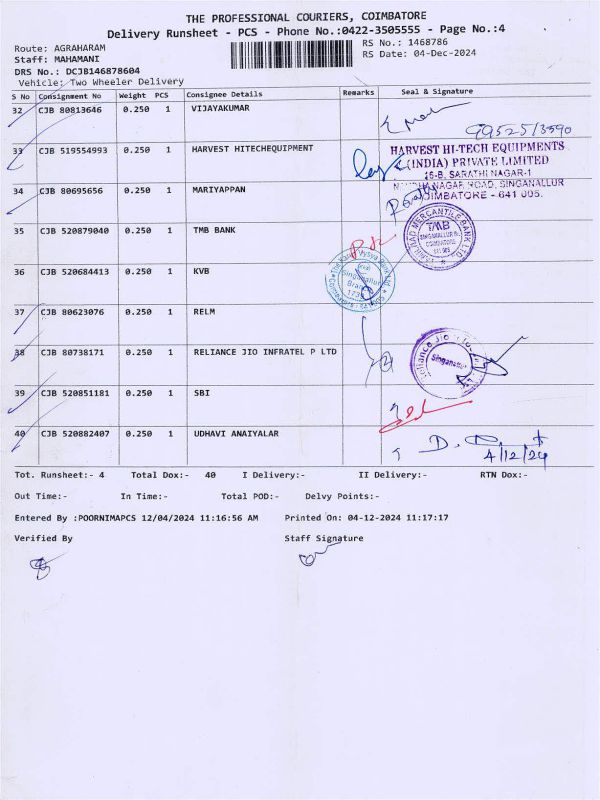 THE PROFESSIONAL COURIERS, COIMBATORE
Delivery Runsheet - PCS - Phone No.:0422-3505555 - Page No.:4
Route: AGRAHARAM
RS No.: 1468786
Staff: MAHAMANI
RS Date: 04-Dec-2024
DRS No.: DCJB146878604
Vehicle: Two Wheeler Delivery
S No Consignment No Weight PCS Consignee Details Remarks Seal & Signature
32 CJB 80813646 0.250 1 VIJAYAKUMAR
33 CJB 519554993 0.250 1 HARVEST HITECHEQUIPMENT
HARVEST HI-TECH EQUIPMENTS
(INDIA) PRIVATE LIMITED
15-B, SARATHI NAGAR-1
NAGAR ROAD, SINGANALLUR
COIMBATORE - 641 005.
34 CJB 80695656 0.250 1 MARIYAPPAN
35 CJB 520879040 0.250 1 TMB BANK
TMB
36 CJB 520684413 0.250 1 KVB
Singanallur
37 CJB 80623076 0.250 1 RELM
38 CJB 80738171 0.250 1 RELIANCE JIO INFRATEL P LTD
Reliance Jio
Singanallur
39 CJB 520851181 0.250 1 SBI
40 CJB 520882407 0.250 1 UDHAVI ANAIYALAR
4/12/24
Tot. Runsheet:- 4 Total Dox:- 40 I Delivery:- II Delivery:- RTN Dox:-
Out Time:- In Time:- Total POD:- Delvy Points:-
Entered By :POORNIMAPCS 12/04/2024 11:16:56 AM Printed On: 04-12-2024 11:17:17
Verified By Staff Signature